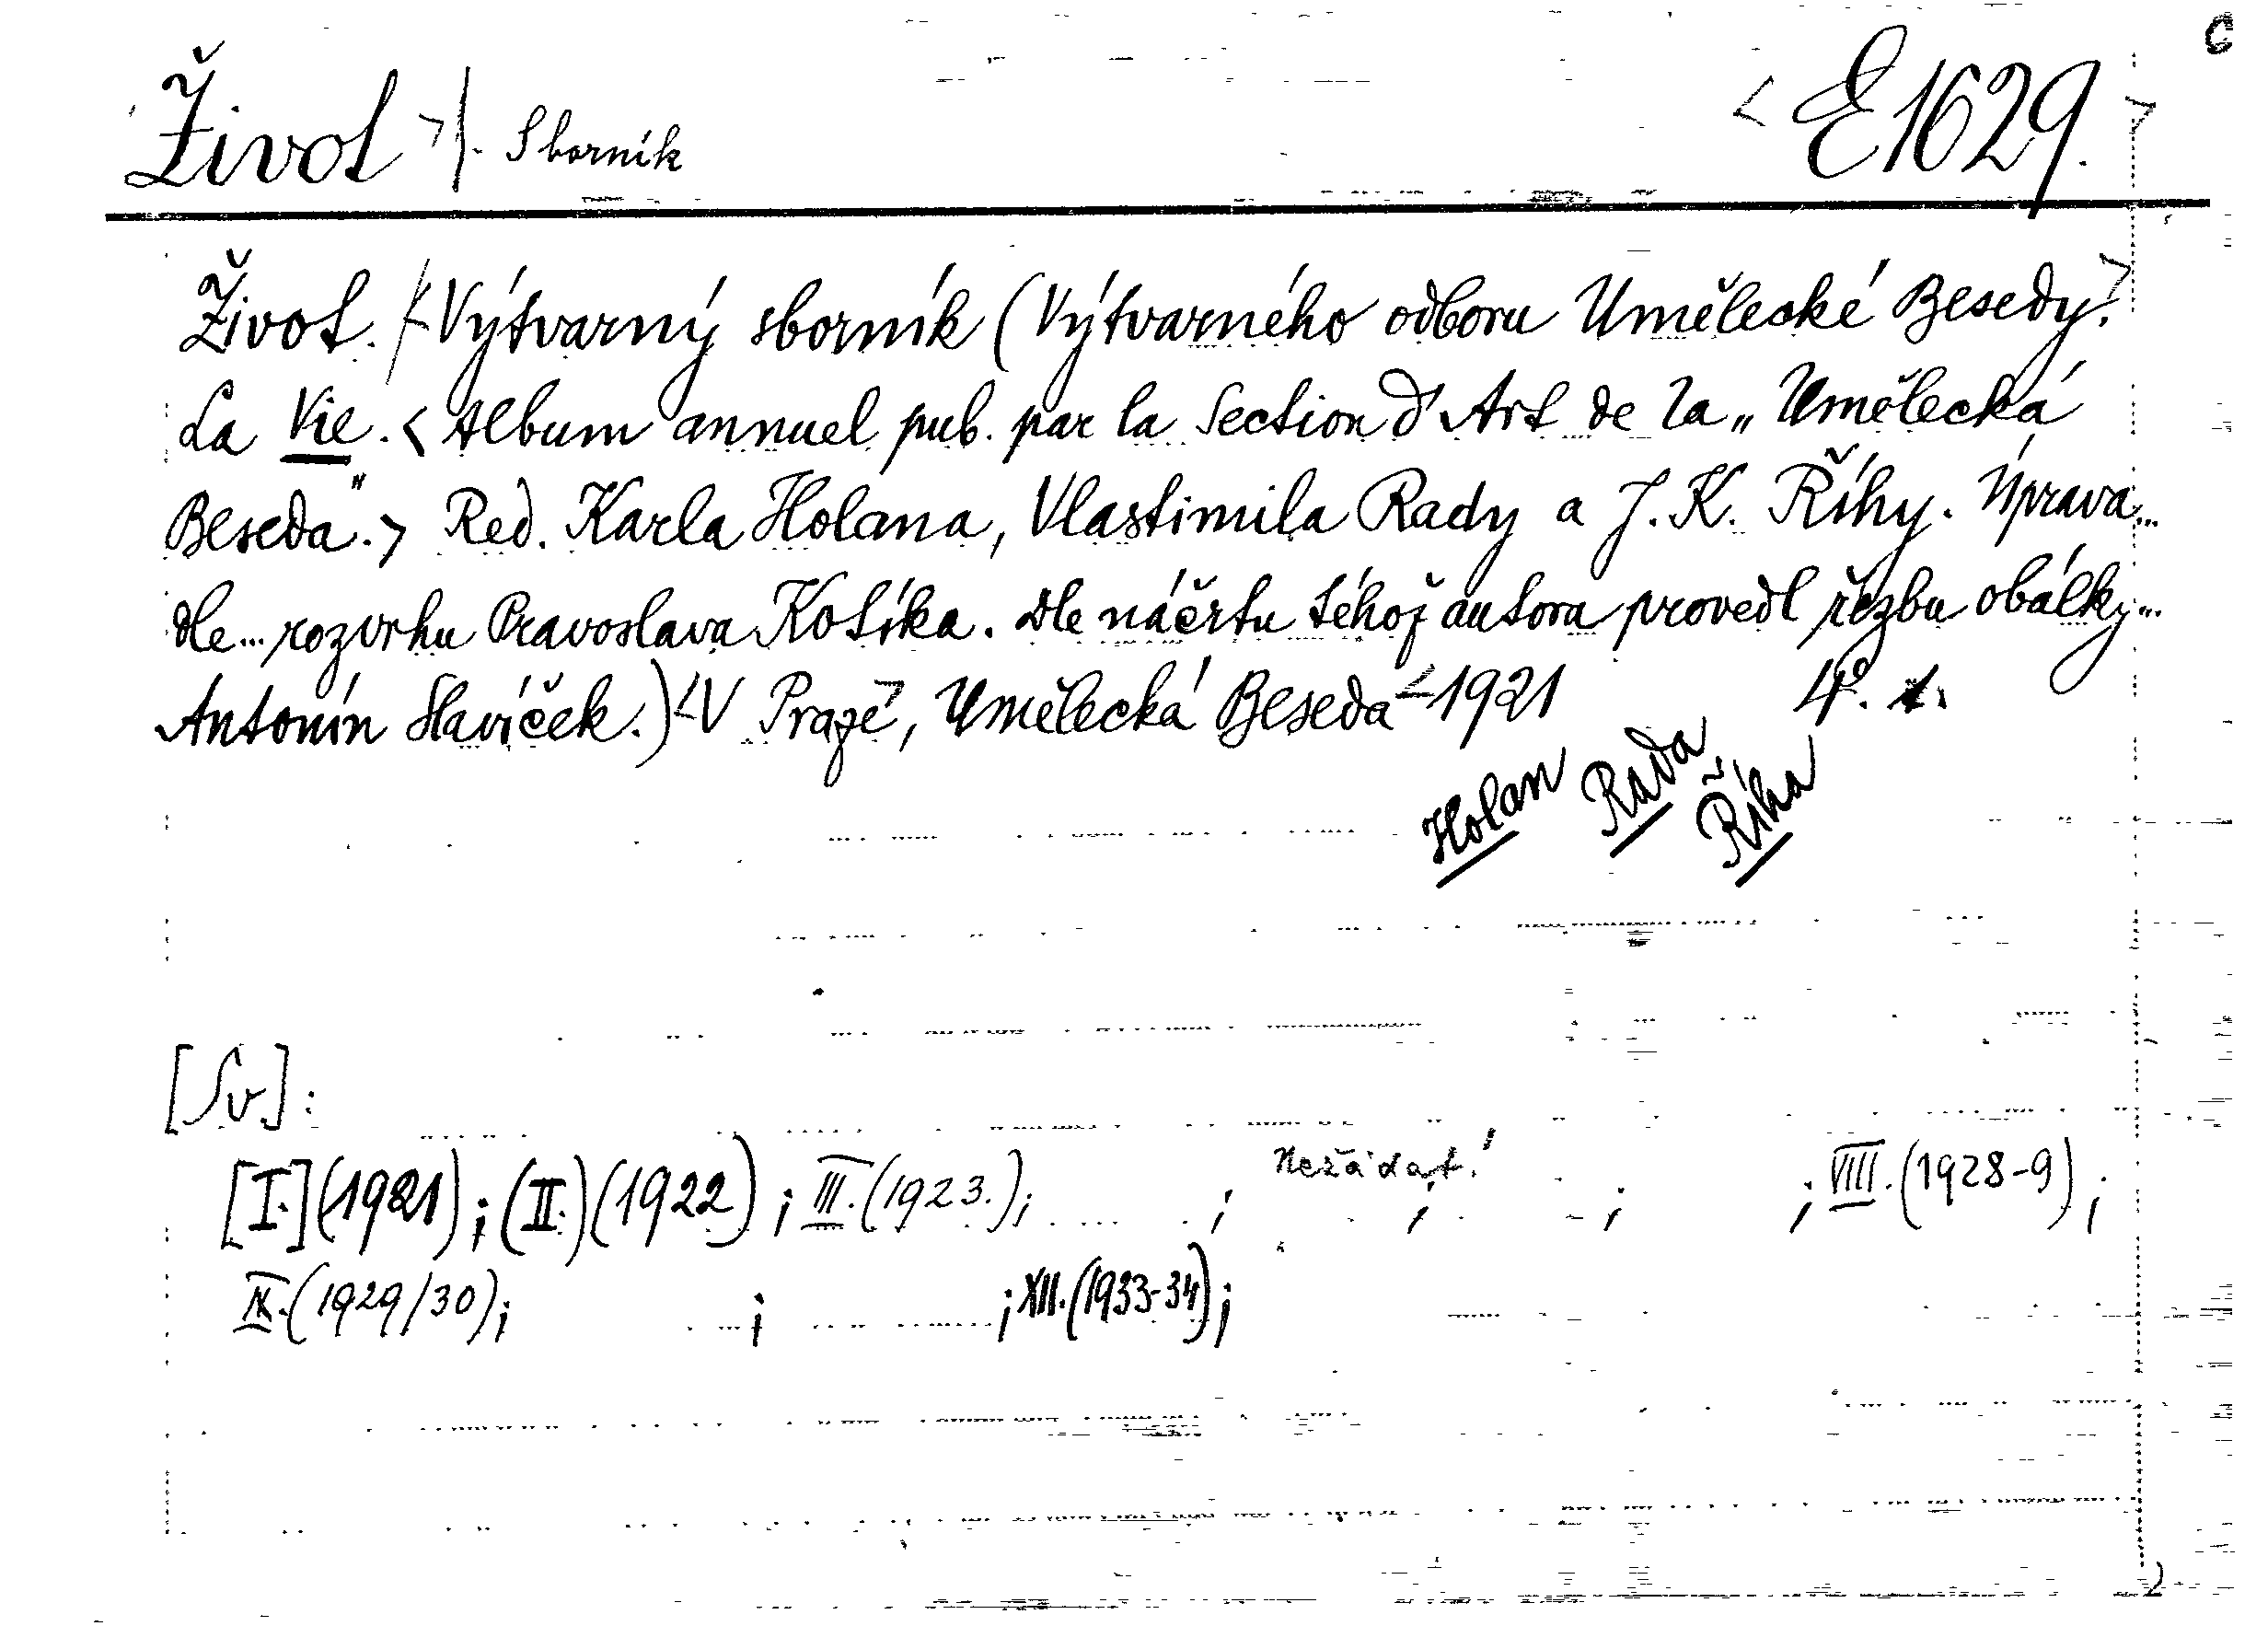 Život >|. Sborník < E1629. >
C
Život. /< Výtvarný sborník (Výtvarného odboru Umělecké Besedy.>
La Vie. < Album annuel pub. par la Section d'Art de la „Umělecká
Beseda".> Red. Karla Holana, Vlastimila Rady a J. K. Říhy. Úprava...
dle... rozvrhu Pravoslava Kotíka. Dle náčrtu téhož autora provedl řezbu obálky...
Antonín Slavíček.) <V Praze>, Umělecká Beseda <1921 4°.
Holan Rada Říha
[Sv.]:
[I.] (1921); (II.) (1922); III. (1923.); ; nežádat! ; ; ; VIII. (1928-9);
IX. (1929/30); ; ; XII. (1933-34);
2